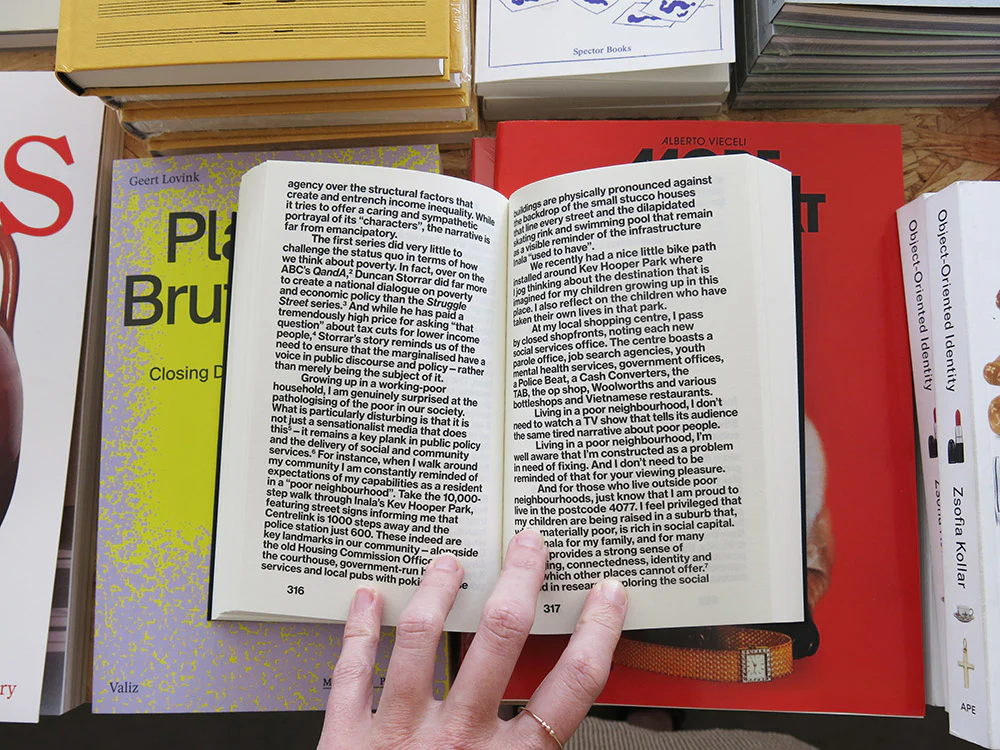 Spector Books
Geert Lovink
Pla
Brut
Closing D
Valiz
ALBERTO VIECELI
MORE
S
ry
agency over the structural factors that
create and entrench income inequality. While
it tries to offer a caring and sympathetic
portrayal of its “characters”, the narrative is
far from emancipatory.
The first series did very little to
challenge the status quo in terms of how
we think about poverty. In fact, over on the
ABC’s QandA,2 Duncan Storrar did far more
to create a national dialogue on poverty
and economic policy than the Struggle
Street series.3 And while he has paid a
tremendously high price for asking “that
question” about tax cuts for lower income
people,4 Storrar’s story reminds us of the
need to ensure that the marginalised have a
voice in public discourse and policy – rather
than merely being the subject of it.
Growing up in a working-poor
household, I am genuinely surprised at the
pathologising of the poor in our society.
What is particularly disturbing is that it is
not just a sensationalist media that does
this5 – it remains a key plank in public policy
and the delivery of social and community
services.6 For instance, when I walk around
my community I am constantly reminded of
expectations of my capabilities as a resident
in a “poor neighbourhood”. Take the 10,000-
step walk through Inala’s Kev Hooper Park,
featuring street signs informing me that
Centrelink is 1000 steps away and the
police station just 600. These indeed are
key landmarks in our community – alongside
the old Housing Commission Office
the courthouse, government-run
services and local pubs with
316
buildings are physically pronounced against
the backdrop of the small stucco houses
that line every street and the dilapidated
skating rink and swimming pool that remain
as a visible reminder of the infrastructure
Inala “used to have”.
We recently had a nice little bike path
installed around Kev Hooper Park where
I jog thinking about the destination that is
imagined for my children growing up in this
place. I also reflect on the children who have
taken their own lives in that park.
At my local shopping centre, I pass
by closed shopfronts, noting each new
social services office. The centre boasts a
parole office, job search agencies, youth
mental health services, government offices,
a Police Beat, a Cash Converters, the
TAB, the op shop, Woolworths and various
bottleshops and Vietnamese restaurants.
Living in a poor neighbourhood, I don’t
need to watch a TV show that tells its audience
the same tired narrative about poor people.
Living in a poor neighbourhood, I’m
well aware that I’m constructed as a problem
in need of fixing. And I don’t need to be
reminded of that for your viewing pleasure.
And for those who live outside poor
neighbourhoods, just know that I am proud to
live in the postcode 4077. I feel privileged that
my children are being raised in a suburb that,
materially poor, is rich in social capital.
nala for my family, and for many
provides a strong sense of
ing, connectedness, identity and
which other places cannot offer.7
ed in resear ploring the social
317
Object-Oriented Identity
Zsofia Kollar
Object-Oriented Identity
Zsofia Kollar
APE